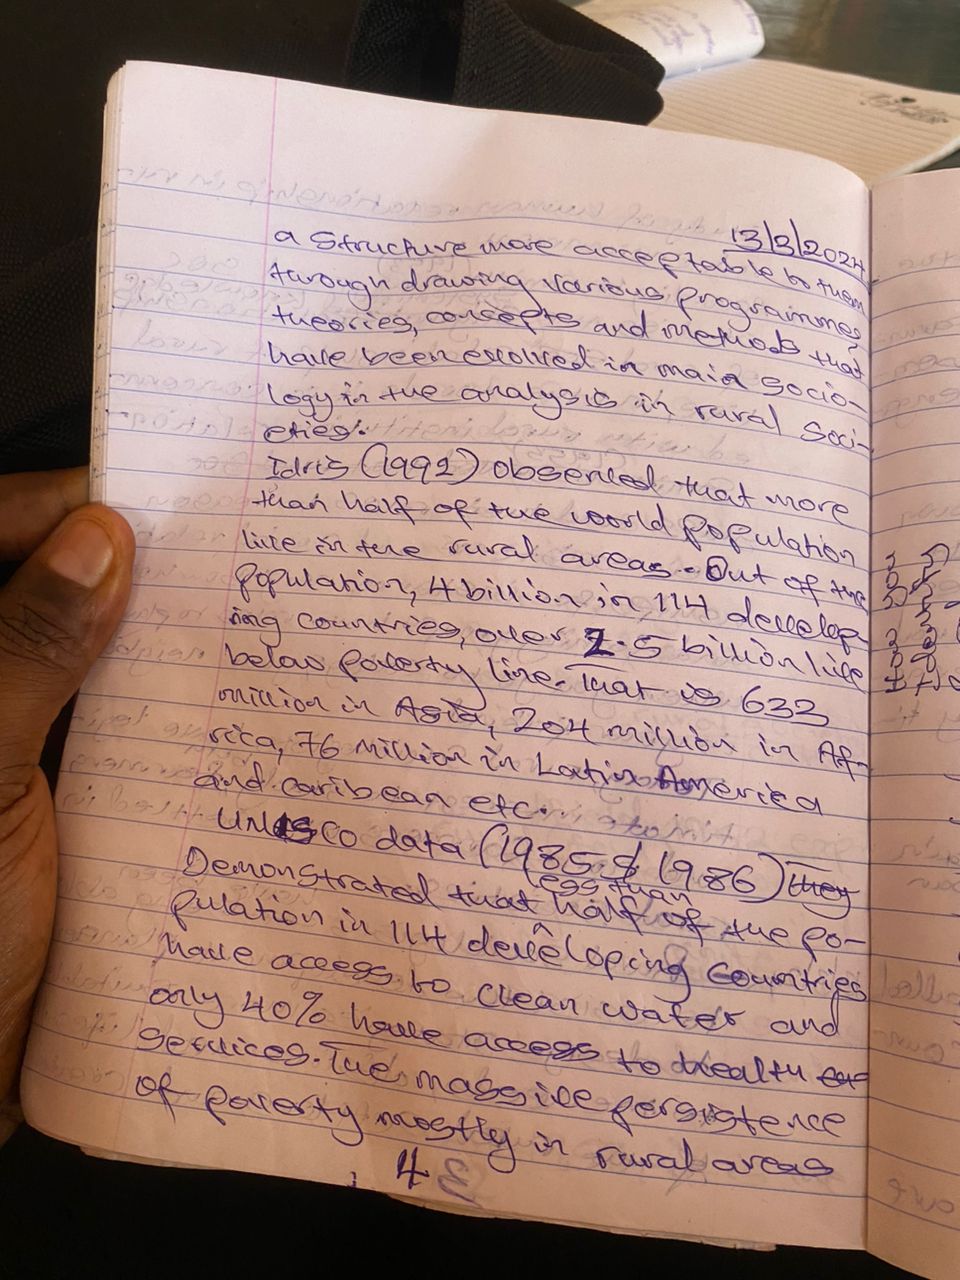 13/3/2024
a structure more acceptable to them
through drawing various programmes,
theories, concepts and methods that
have been evolved in main socio-
logy in the analysis in rural soci-
eties.
Idris (1992) observed that more
than half of the world population
live in the rural areas. Out of the
population, 4 billion in 114 develop-
ing countries, over 2.5 billion live
below poverty line. That is 633
million in Asia, 204 million in Af-
rica, 76 million in Latin America
and caribean etc.
UNESCO data (1985 & 1986) they
Demonstrated that less than half of the po-
pulation in 114 developing countries
have access to clean water and
only 40% have access to health
services. The massive persistence
of poverty mostly in rural areas
4